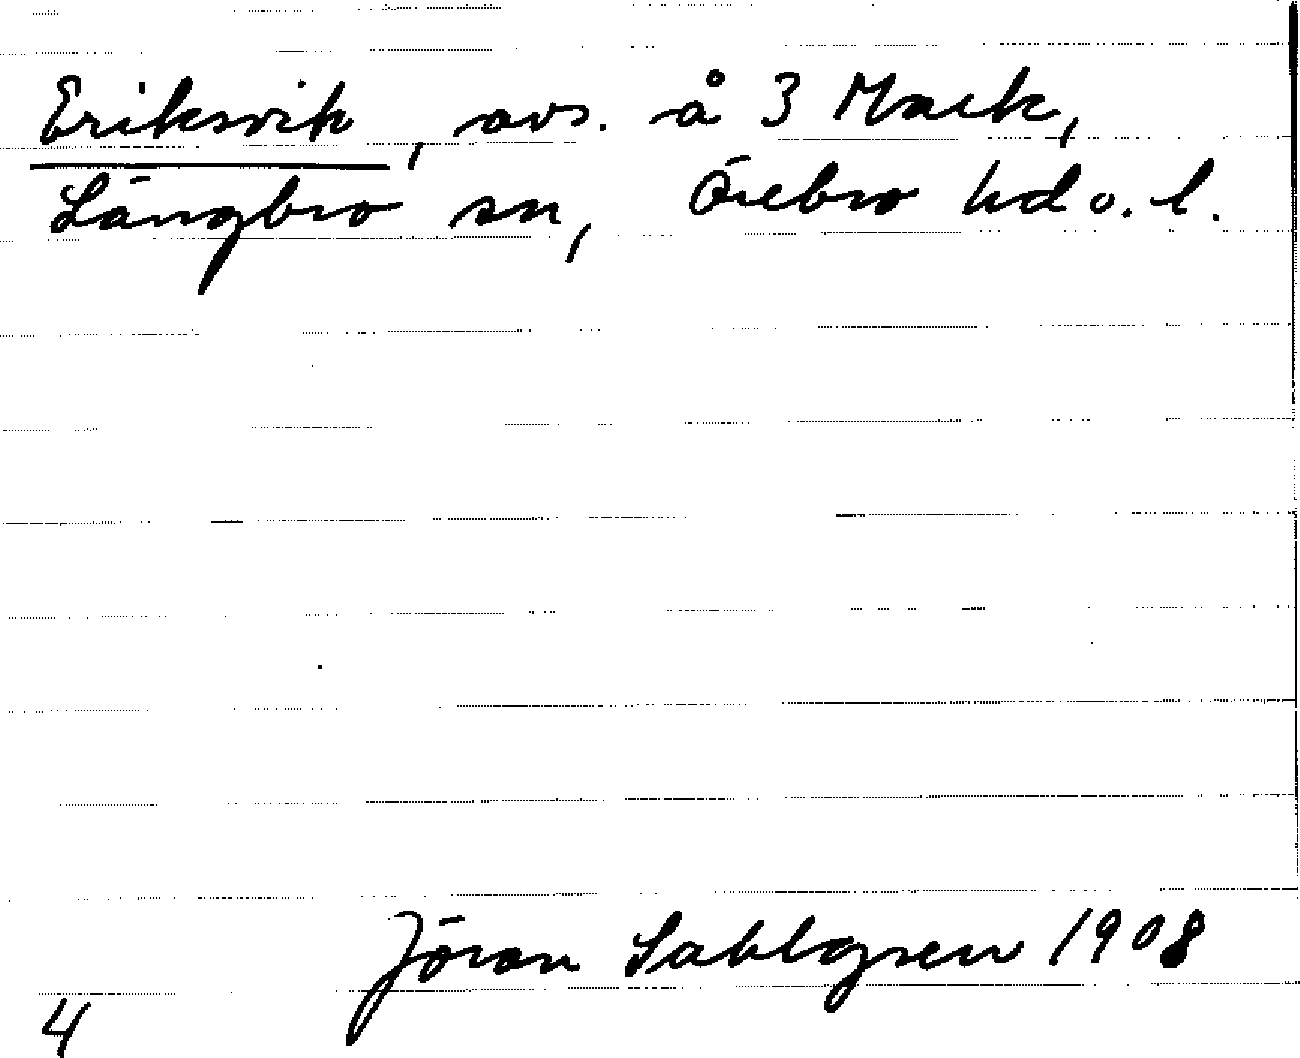 Eriksvik, avs. å 3 Mark,
Längbro sn, Örebro hd o. l.
Jöran Sahlgren 1908
4